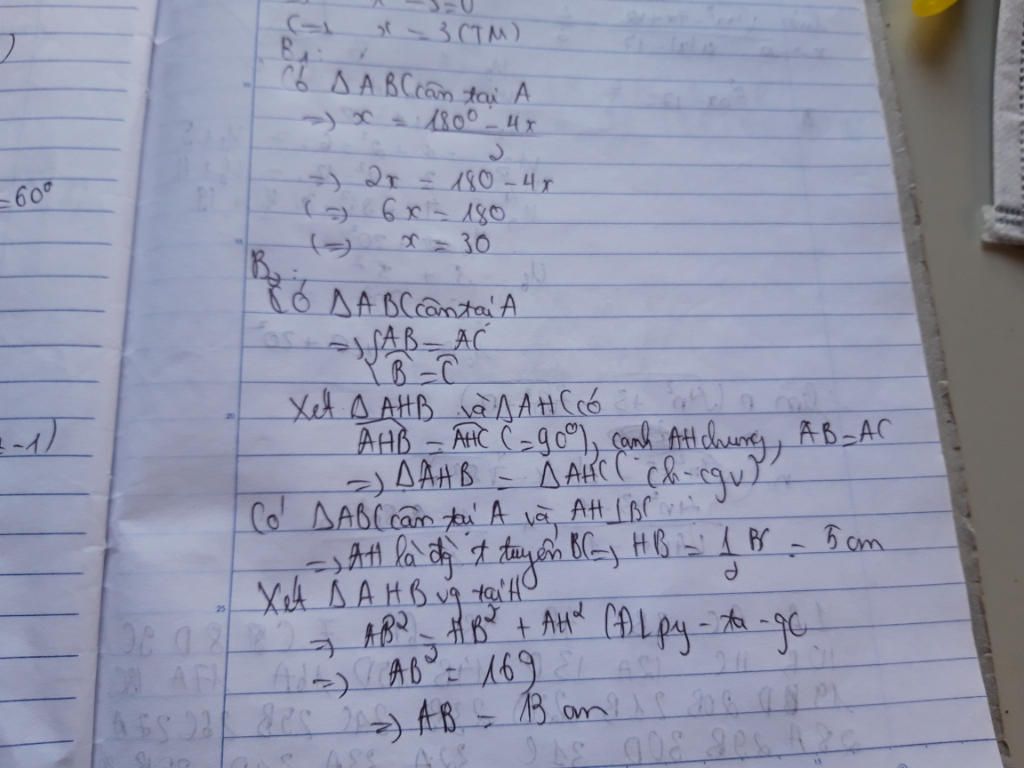 x - 3 = 0
<=> x = 3 (TM)
B1:
Có ΔABC cân tại A
=> x = 180° - 4x
2
=> 2x = 180 - 4x
=60°
<=> 6x = 180
<=> x = 30
B2:
Có ΔABC cân tại A
=> { AB = AC
B̂ = Ĉ
Xét ΔAHB và ΔAHC có
-1)
AHB = AHC (=90°), cạnh AH chung, AB=AC
=> ΔAHB = ΔAHC (ch-cgv)
Có ΔABC cân tại A và AH⊥BC
=> AH là đg t tuyến BC => HB = 1 BC = 5 cm
2
Xét ΔAHB vg tại H
=> AB² = HB² + AH² (ĐL py-ta-go)
=> AB² = 169
=> AB = 13 cm